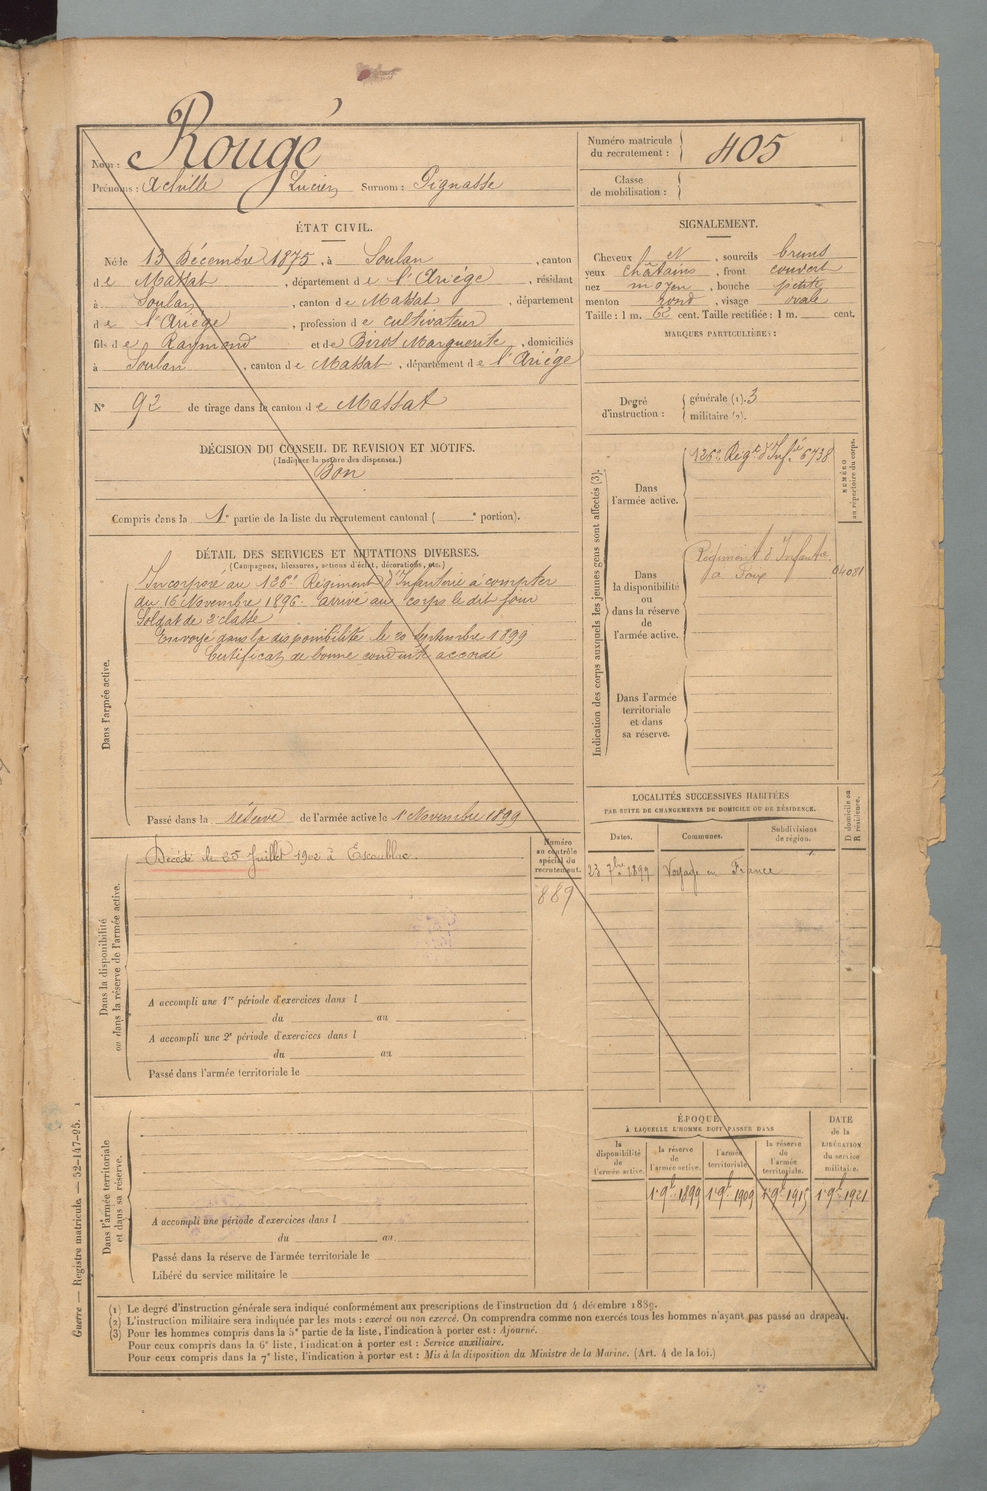 Nom : Rougé
Prénoms : Achille Lucien Surnom : Pignasse
Numéro matricule du recrutement : 405
Classe de mobilisation :
ÉTAT CIVIL.
Né le 13 Décembre 1875, à Soulan, canton
de Massat, département de l'Ariége, résidant
à Soulan, canton de Massat, département
de l'Ariége, profession de cultivateur
fils de Raymond et de Birot Marguerite, domiciliés
à Soulan, canton de Massat, département de l'Ariége
N° 92 de tirage dans le canton de Massat
SIGNALEMENT.
Cheveux et N, sourcils bruns
yeux châtains, front couvert
nez moyen, bouche petite
menton rond, visage ovale
Taille : 1 m. 62 cent. Taille rectifiée : 1 m. cent.
MARQUES PARTICULIÈRES :
Degré d'instruction : générale (1). 3
militaire (2).
DÉCISION DU CONSEIL DE REVISION ET MOTIFS.
(Indiquer la nature des dispenses.)
Bon
Compris dans la 1e partie de la liste du recrutement cantonal ( e portion).
DÉTAIL DES SERVICES ET MUTATIONS DIVERSES.
(Campagnes, blessures, actions d'éclat, décorations, etc.)
Dans l'armée active.
Incorporé au 126e Régiment d'Infanterie à compter
du 16 Novembre 1896. arrivé au corps le dit jour
Soldat de 2e classe
Envoyé dans la disponibilité le 20 septembre 1899
Certificat de bonne conduite accordé
Passé dans la réserve de l'armée active le 1 Novembre 1899
Indication des corps auxquels les jeunes gens sont affectés (3).
NUMÉRO au répertoire du corps.
Dans l'armée active.
126e Régt d'Infie 6738
Dans la disponibilité ou dans la réserve de l'armée active.
Régiment d'Infanterie
à Foix 04081
Dans l'armée territoriale et dans sa réserve.
Dans la disponibilité ou dans la réserve de l'armée active.
Décédé le 25 Juillet 1902 à
Numéro au contrôle spécial du recrutement.
889
A accompli une 1re période d'exercices dans l
du au
A accompli une 2e période d'exercices dans l
du au
Passé dans l'armée territoriale le
LOCALITÉS SUCCESSIVES HABITÉES
PAR SUITE DE CHANGEMENTS DE DOMICILE OU DE RÉSIDENCE.
Dates. Communes. Subdivisions de région. D domicile ou R résidence.
23 7bre 1899 Voyage en France
Dans l'armée territoriale et dans sa réserve.
A accompli une période d'exercices dans l
du au
Passé dans la réserve de l'armée territoriale le
Libéré du service militaire le
ÉPOQUE
À LAQUELLE L'HOMME DOIT PASSER DANS
la disponibilité de l'armée active.
la réserve de l'armée active.
l'armée territoriale.
la réserve de l'armée territoriale.
DATE de la LIBÉRATION du service militaire.
1er 9bre 1899 1er 9bre 1909 1er 9bre 1915 1er 9bre 1921
Guerre — Registre matricule. — 32-147-95. 1
(1) Le degré d'instruction générale sera indiqué conformément aux prescriptions de l'instruction du 4 décembre 1889.
(2) L'instruction militaire sera indiquée par les mots : exercé ou non exercé. On comprendra comme non exercés tous les hommes n'ayant pas passé au drapeau.
(3) Pour les hommes compris dans la 5e partie de la liste, l'indication à porter est : Ajourné.
Pour ceux compris dans la 6e liste, l'indication à porter est : Service auxiliaire.
Pour ceux compris dans la 7e liste, l'indication à porter est : Mis à la disposition du Ministre de la Marine. (Art. 4 de la loi.)